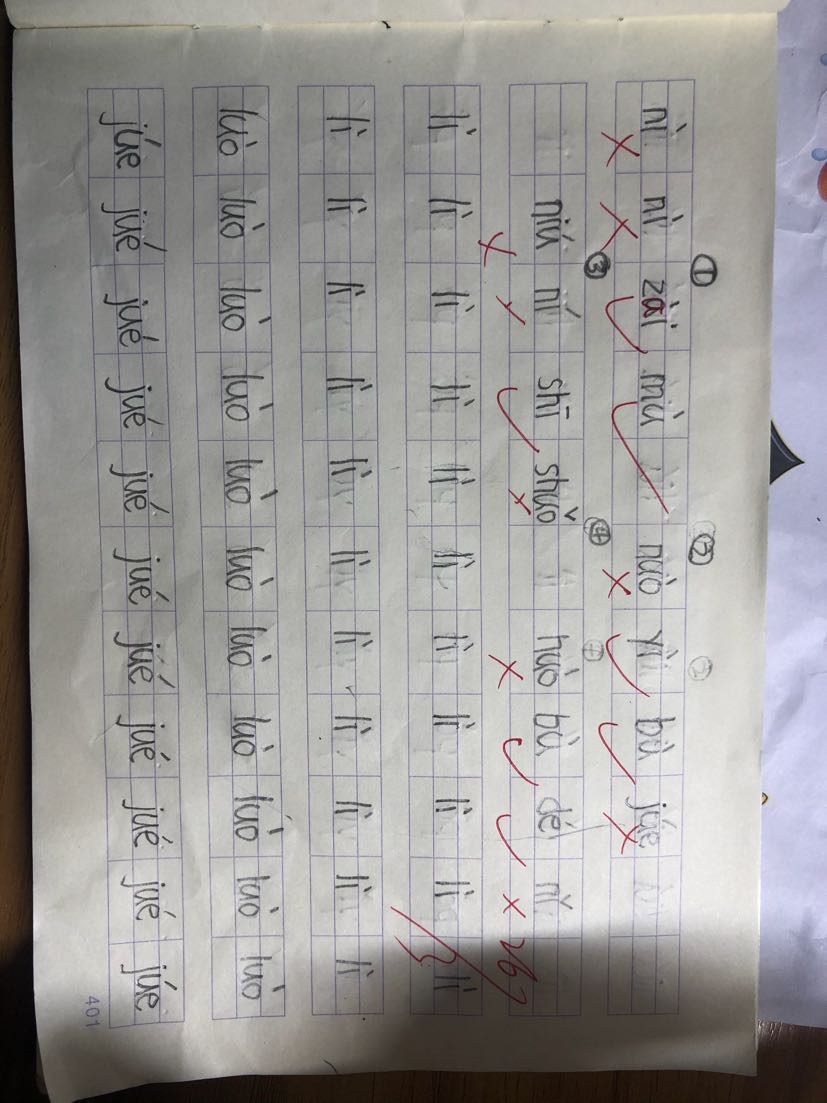 ①
nì nì zài mù nuò yì bù júe
③ ④ ⑦
niú ní shī shuǒ huò bù dé
lì lì lì lì lì lì lì lì lì lì lì
lì lì lì lì lì lì lì lì lì lì lì
luò luò luò luò luò luò luò luò luò luò luò
júe jué jué jué jué jué jué jué jué jué júe
401